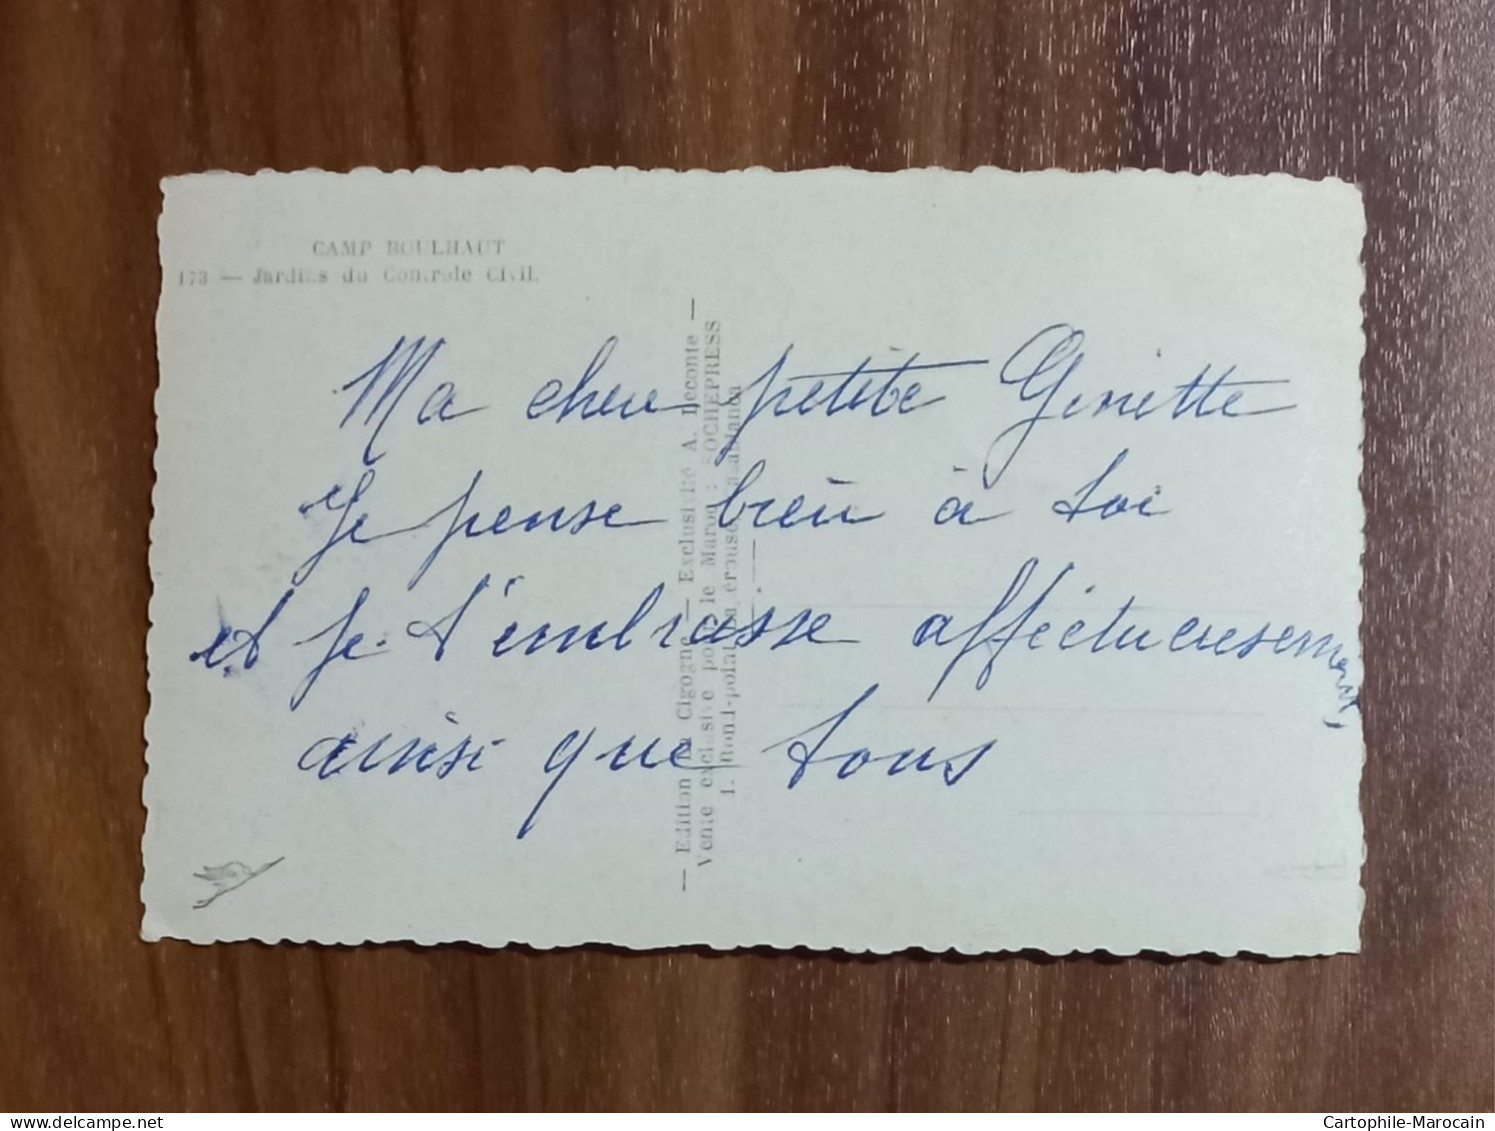 CAMP BOULHAUT
173 — Jardins du Controle Civil.
Ma chere petite Ginette
Je pense bien à toi
et je t'embrasse affectueusement,
ainsi que tous
— Edition La Cigogne — Exclusivité A. Leconte —
Vente exclusive pour le Maroc : SOCHEPRESS
1. Rond-point La érouse, Casablanca
delcampe.net
Cartophile-Marocain